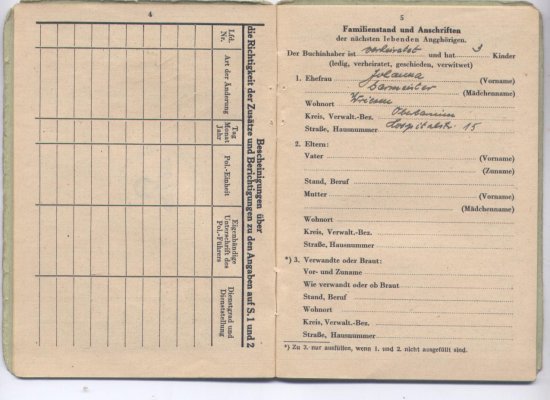 4
Bescheinigungen über
die Richtigkeit der Zusätze und Berichtigungen zu den Angaben auf S. 1 und 2
Lfd. Nr.
Art der Änderung
Tag Monat Jahr
Pol.-Einheit
Eigenhändige Unterschrift des Pol.-Führers
Dienstgrad und Dienststellung
5
Familienstand und Anschriften
der nächsten lebenden Angghörigen.
Der Buchinhaber ist verheiratet und hat 3 Kinder
(ledig, verheiratet, geschieden, verwitwet)
1. Ehefrau Johanna (Vorname)
(Mädchenname)
Wohnort Wriezen
Kreis, Verwalt.-Bez. Oberbarnim
Straße, Hausnummer Hospitalstr. 15
2. Eltern:
Vater (Vorname)
(Zuname)
Stand, Beruf
Mutter (Vorname)
(Mädchenname)
Wohnort
Kreis, Verwalt.-Bez.
Straße, Hausnummer
*) 3. Verwandte oder Braut:
Vor- und Zuname
Wie verwandt oder ob Braut
Stand, Beruf
Wohnort
Kreis, Verwalt.-Bez.
Straße, Hausnummer
*) Zu 3. nur ausfüllen, wenn 1. und 2. nicht ausgefüllt sind.